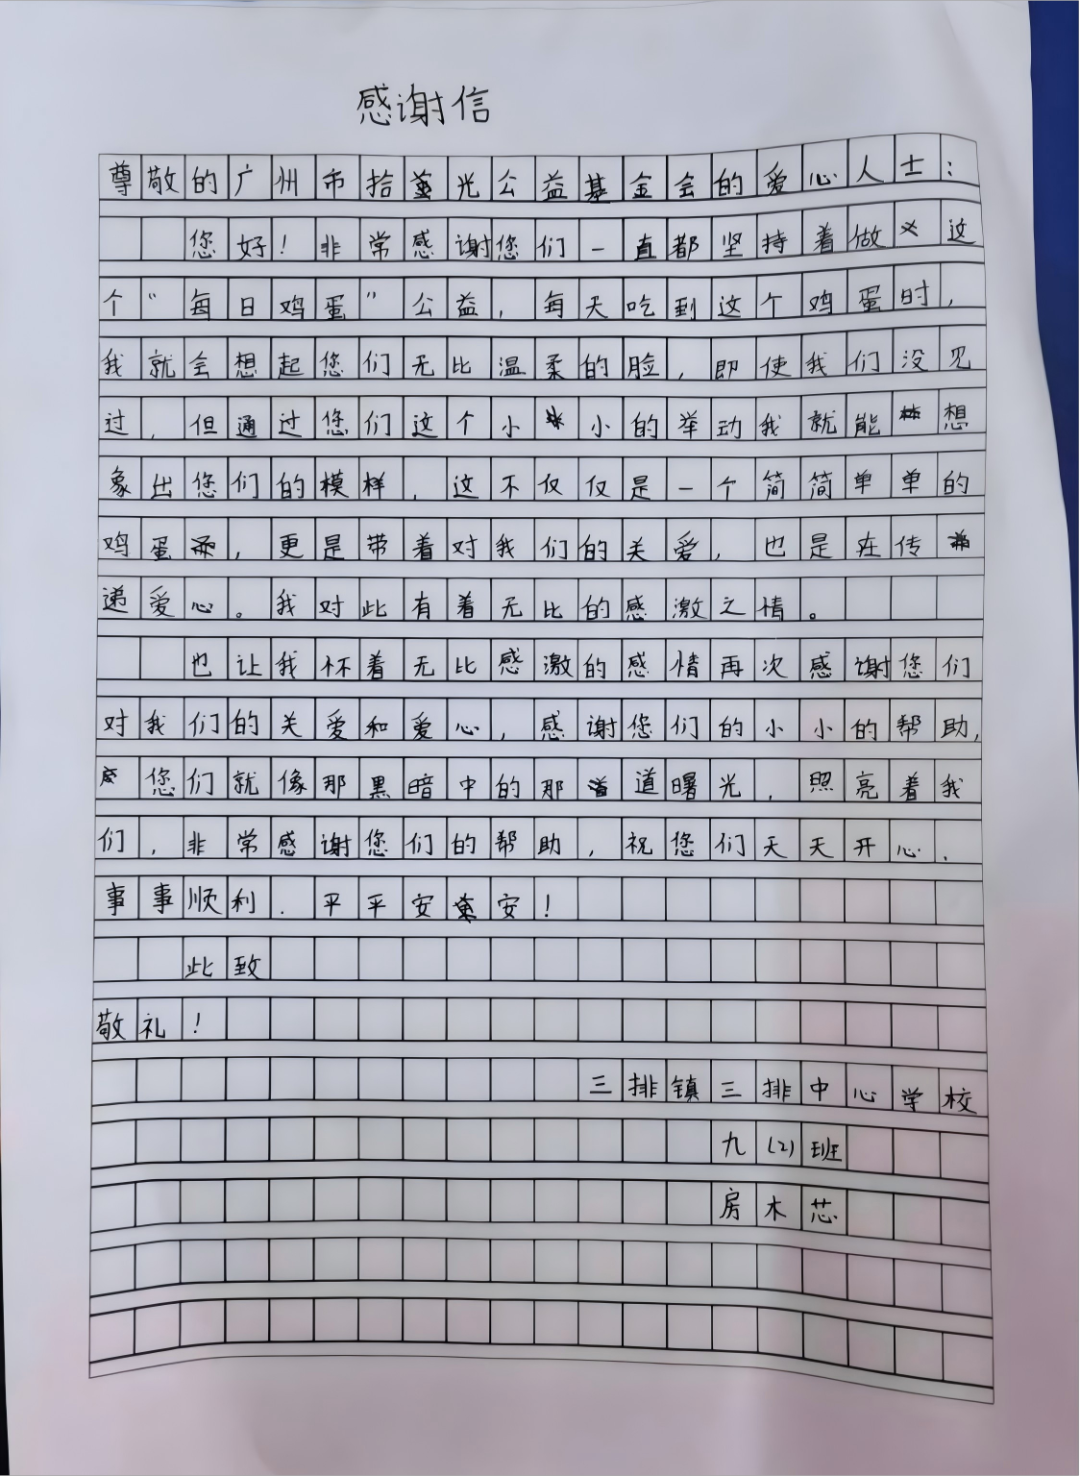 感谢信
尊敬的广州市拾光公益基金会的爱心人士：
您好！非常感谢您们一直都坚持着做这
个“每日鸡蛋”公益，每天吃到这个鸡蛋时，
我就会想起您们无比温柔的脸，即使我们没见
过，但通过您们这个小小的举动我就能想
象出您们的模样，这不仅仅是一个简简单单的
鸡蛋，更是带着对我们的关爱，也是在传
递爱心。我对此有着无比的感激之情。
也让我怀着无比感激的感情再次感谢您们
对我们的关爱和爱心，感谢您们的小小的帮助，
您们就像那黑暗中的那道曙光，照亮着我
们，非常感谢您们的帮助，祝您们天天开心、
事事顺利、平平安安！
此致
敬礼！
三排镇三排中心学校
九(2)班
房木芯